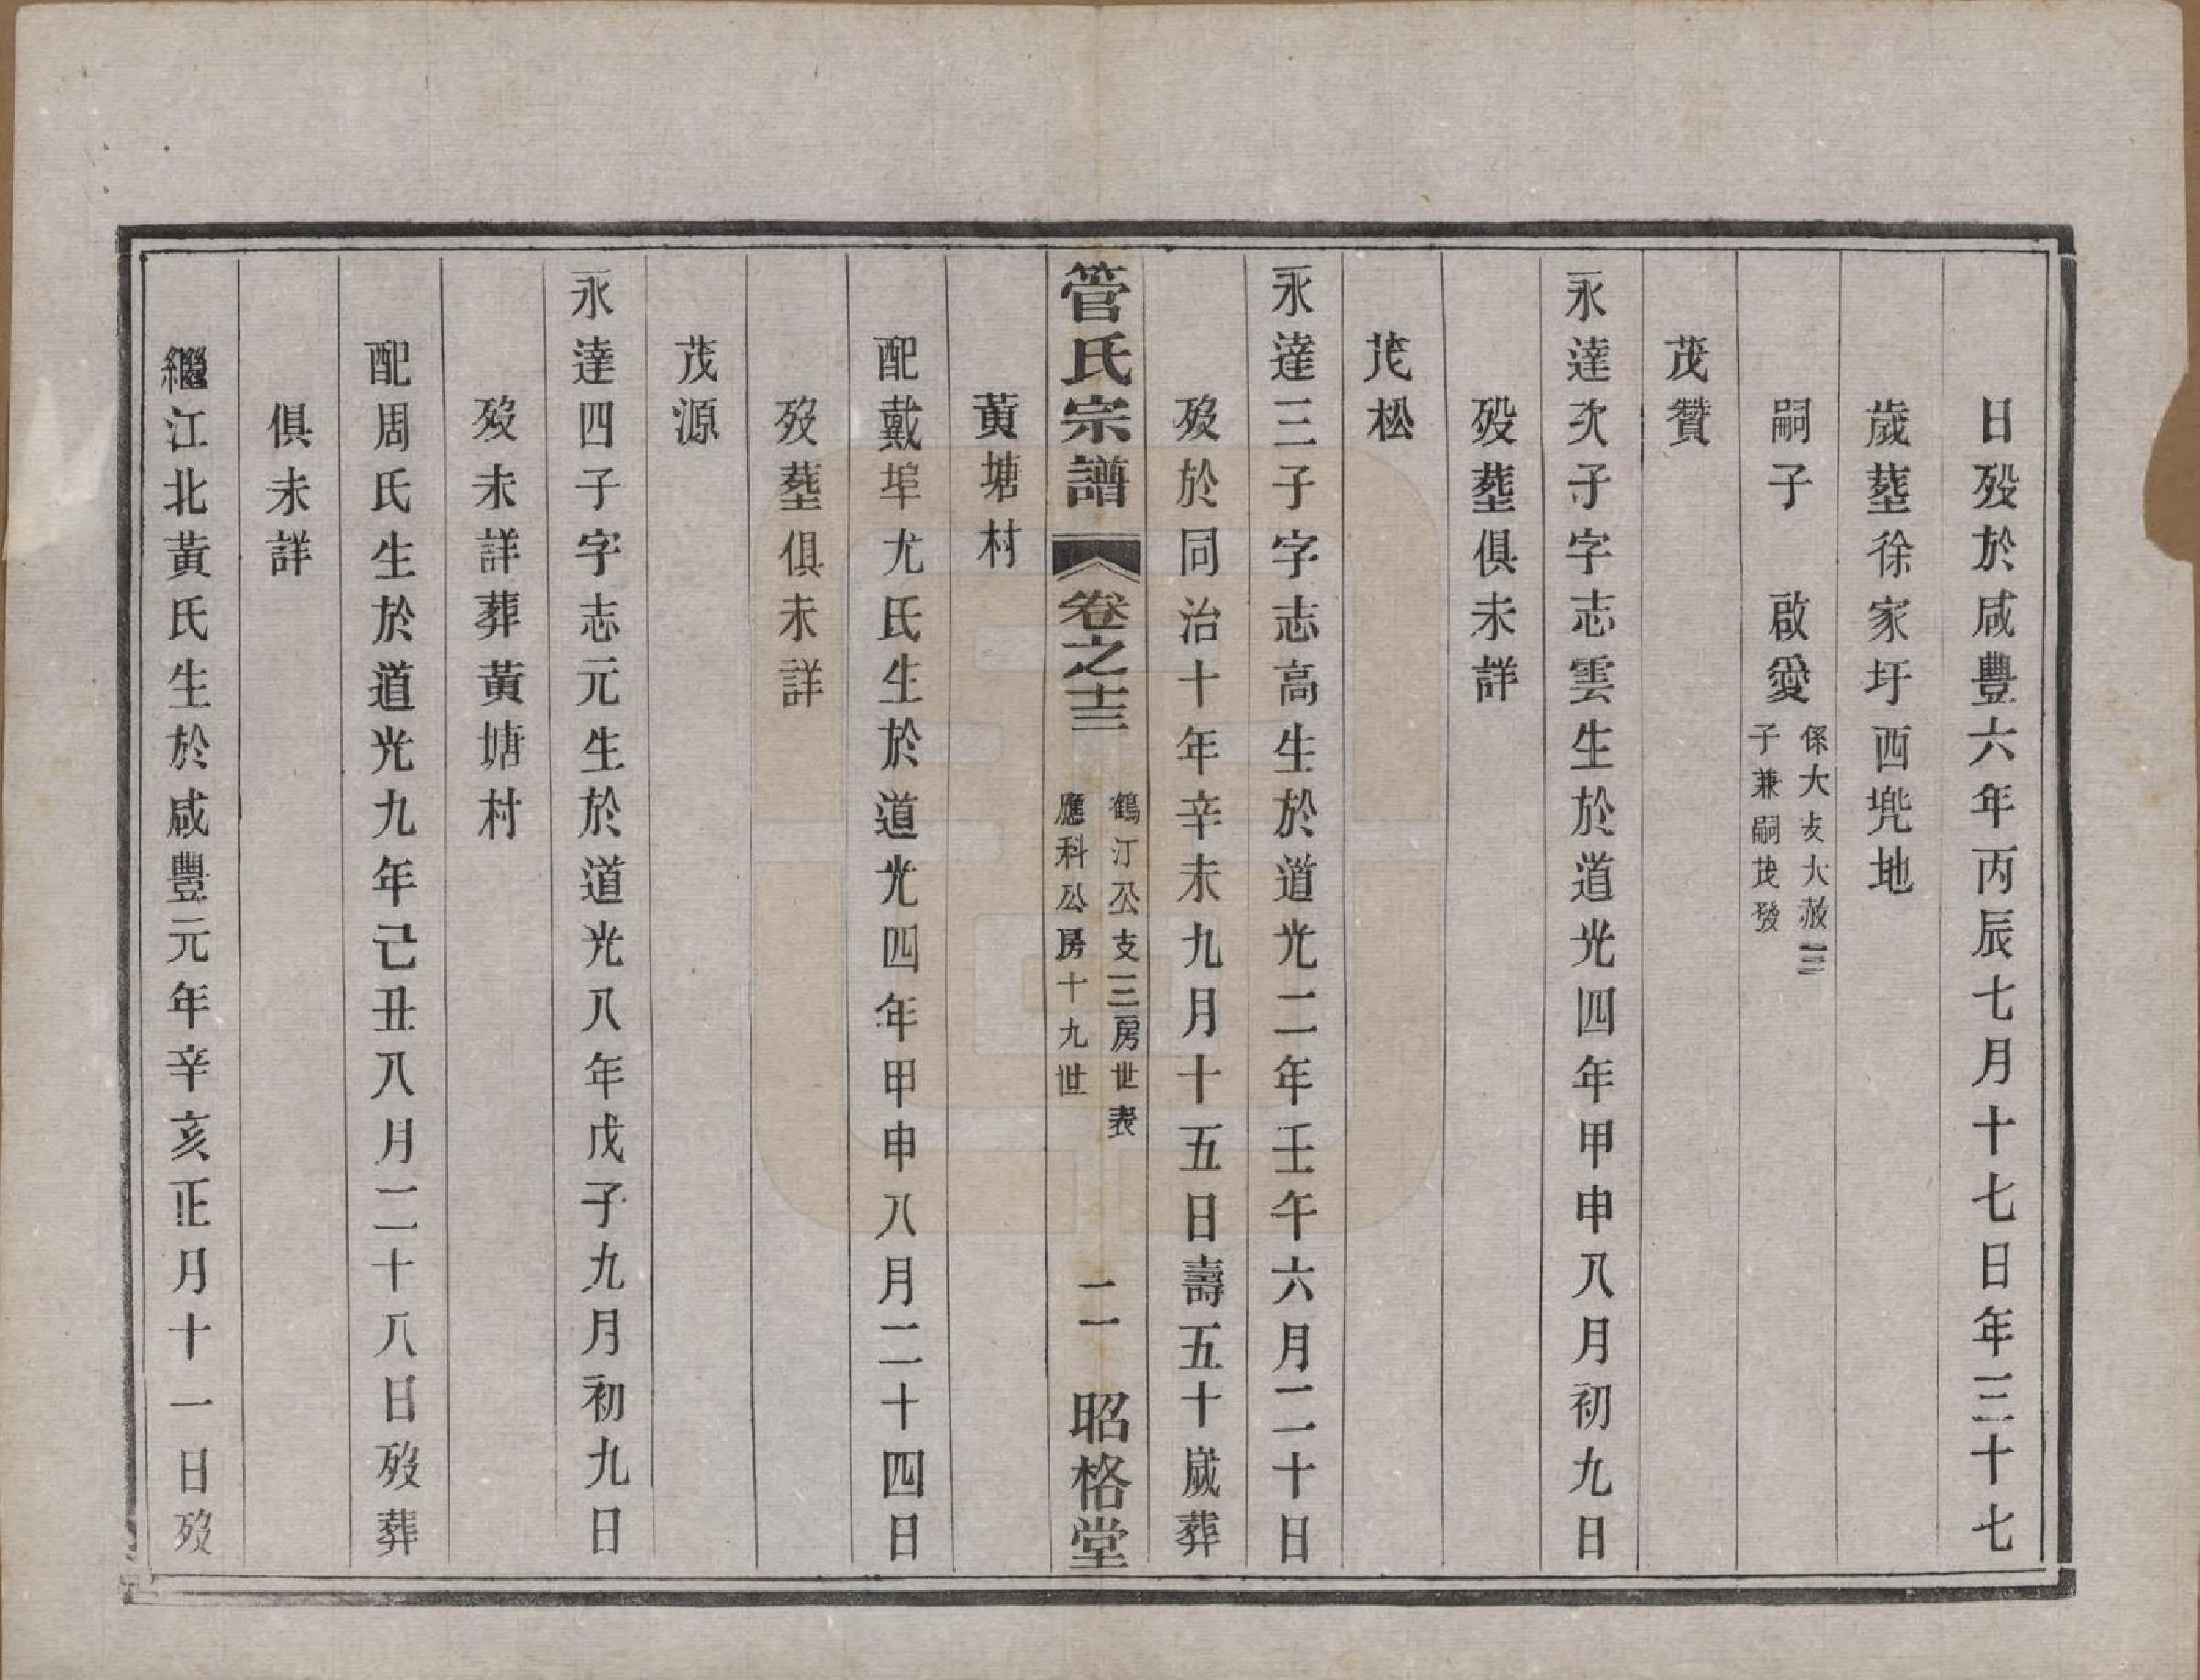 日歿於咸豐六年丙辰七月十七日年三十七
歲葬徐家圩西兠地
嗣子　啟愛係大支大赦三子兼嗣茂發
茂贊
永達次子字志雲生於道光四年甲申八月初九日
歿葬俱未詳
茂松
永達三子字志高生於道光二年壬午六月二十日
歿於同治十年辛未九月十五日壽五十歲葬
管氏宗譜　卷之十三　鶴汀公支三房世表應科公房十九世　二　昭格堂
黃塘村
配戴埠尤氏生於道光四年甲申八月二十四日
歿葬俱未詳
茂源
永達四子字志元生於道光八年戊子九月初九日
歿未詳葬黃塘村
配周氏生於道光九年己丑八月二十八日歿葬
俱未詳
繼江北黃氏生於咸豐元年辛亥正月十一日歿